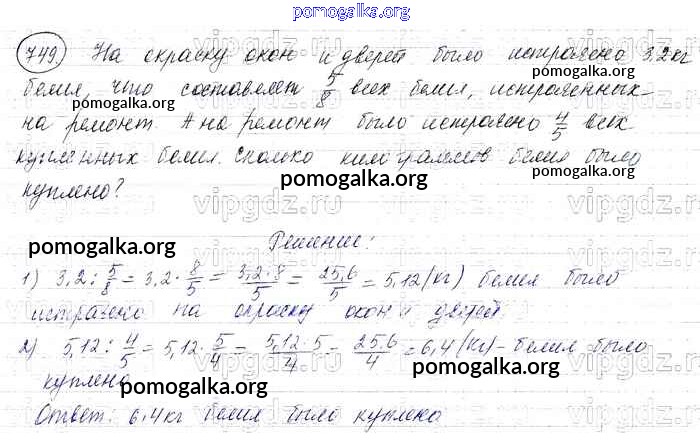 pomogalka.org
749. На окраску окон и дверей было истрачено 3,2 кг
белил, что составляет 5/8 всех белил, истраченных
pomogalka.org
на ремонт. А на ремонт было истрачено 4/5 всех
купленных белил. Сколько килограммов белил было
pomogalka.org
куплено?
vipgdz.ru
Решение:
pomogalka.org
1) 3,2 : 5/8 = 3,2 · 8/5 = 3,2·8/5 = 25,6/5 = 5,12 (кг) белил было
истрачено на окраску окон и дверей
2) 5,12 : 4/5 = 5,12 · 5/4 = 5,12·5/4 = 25,6/4 = 6,4 (кг) - белил было
куплено
pomogalka.org
Ответ: 6,4 кг белил было куплено
pomogalka.org